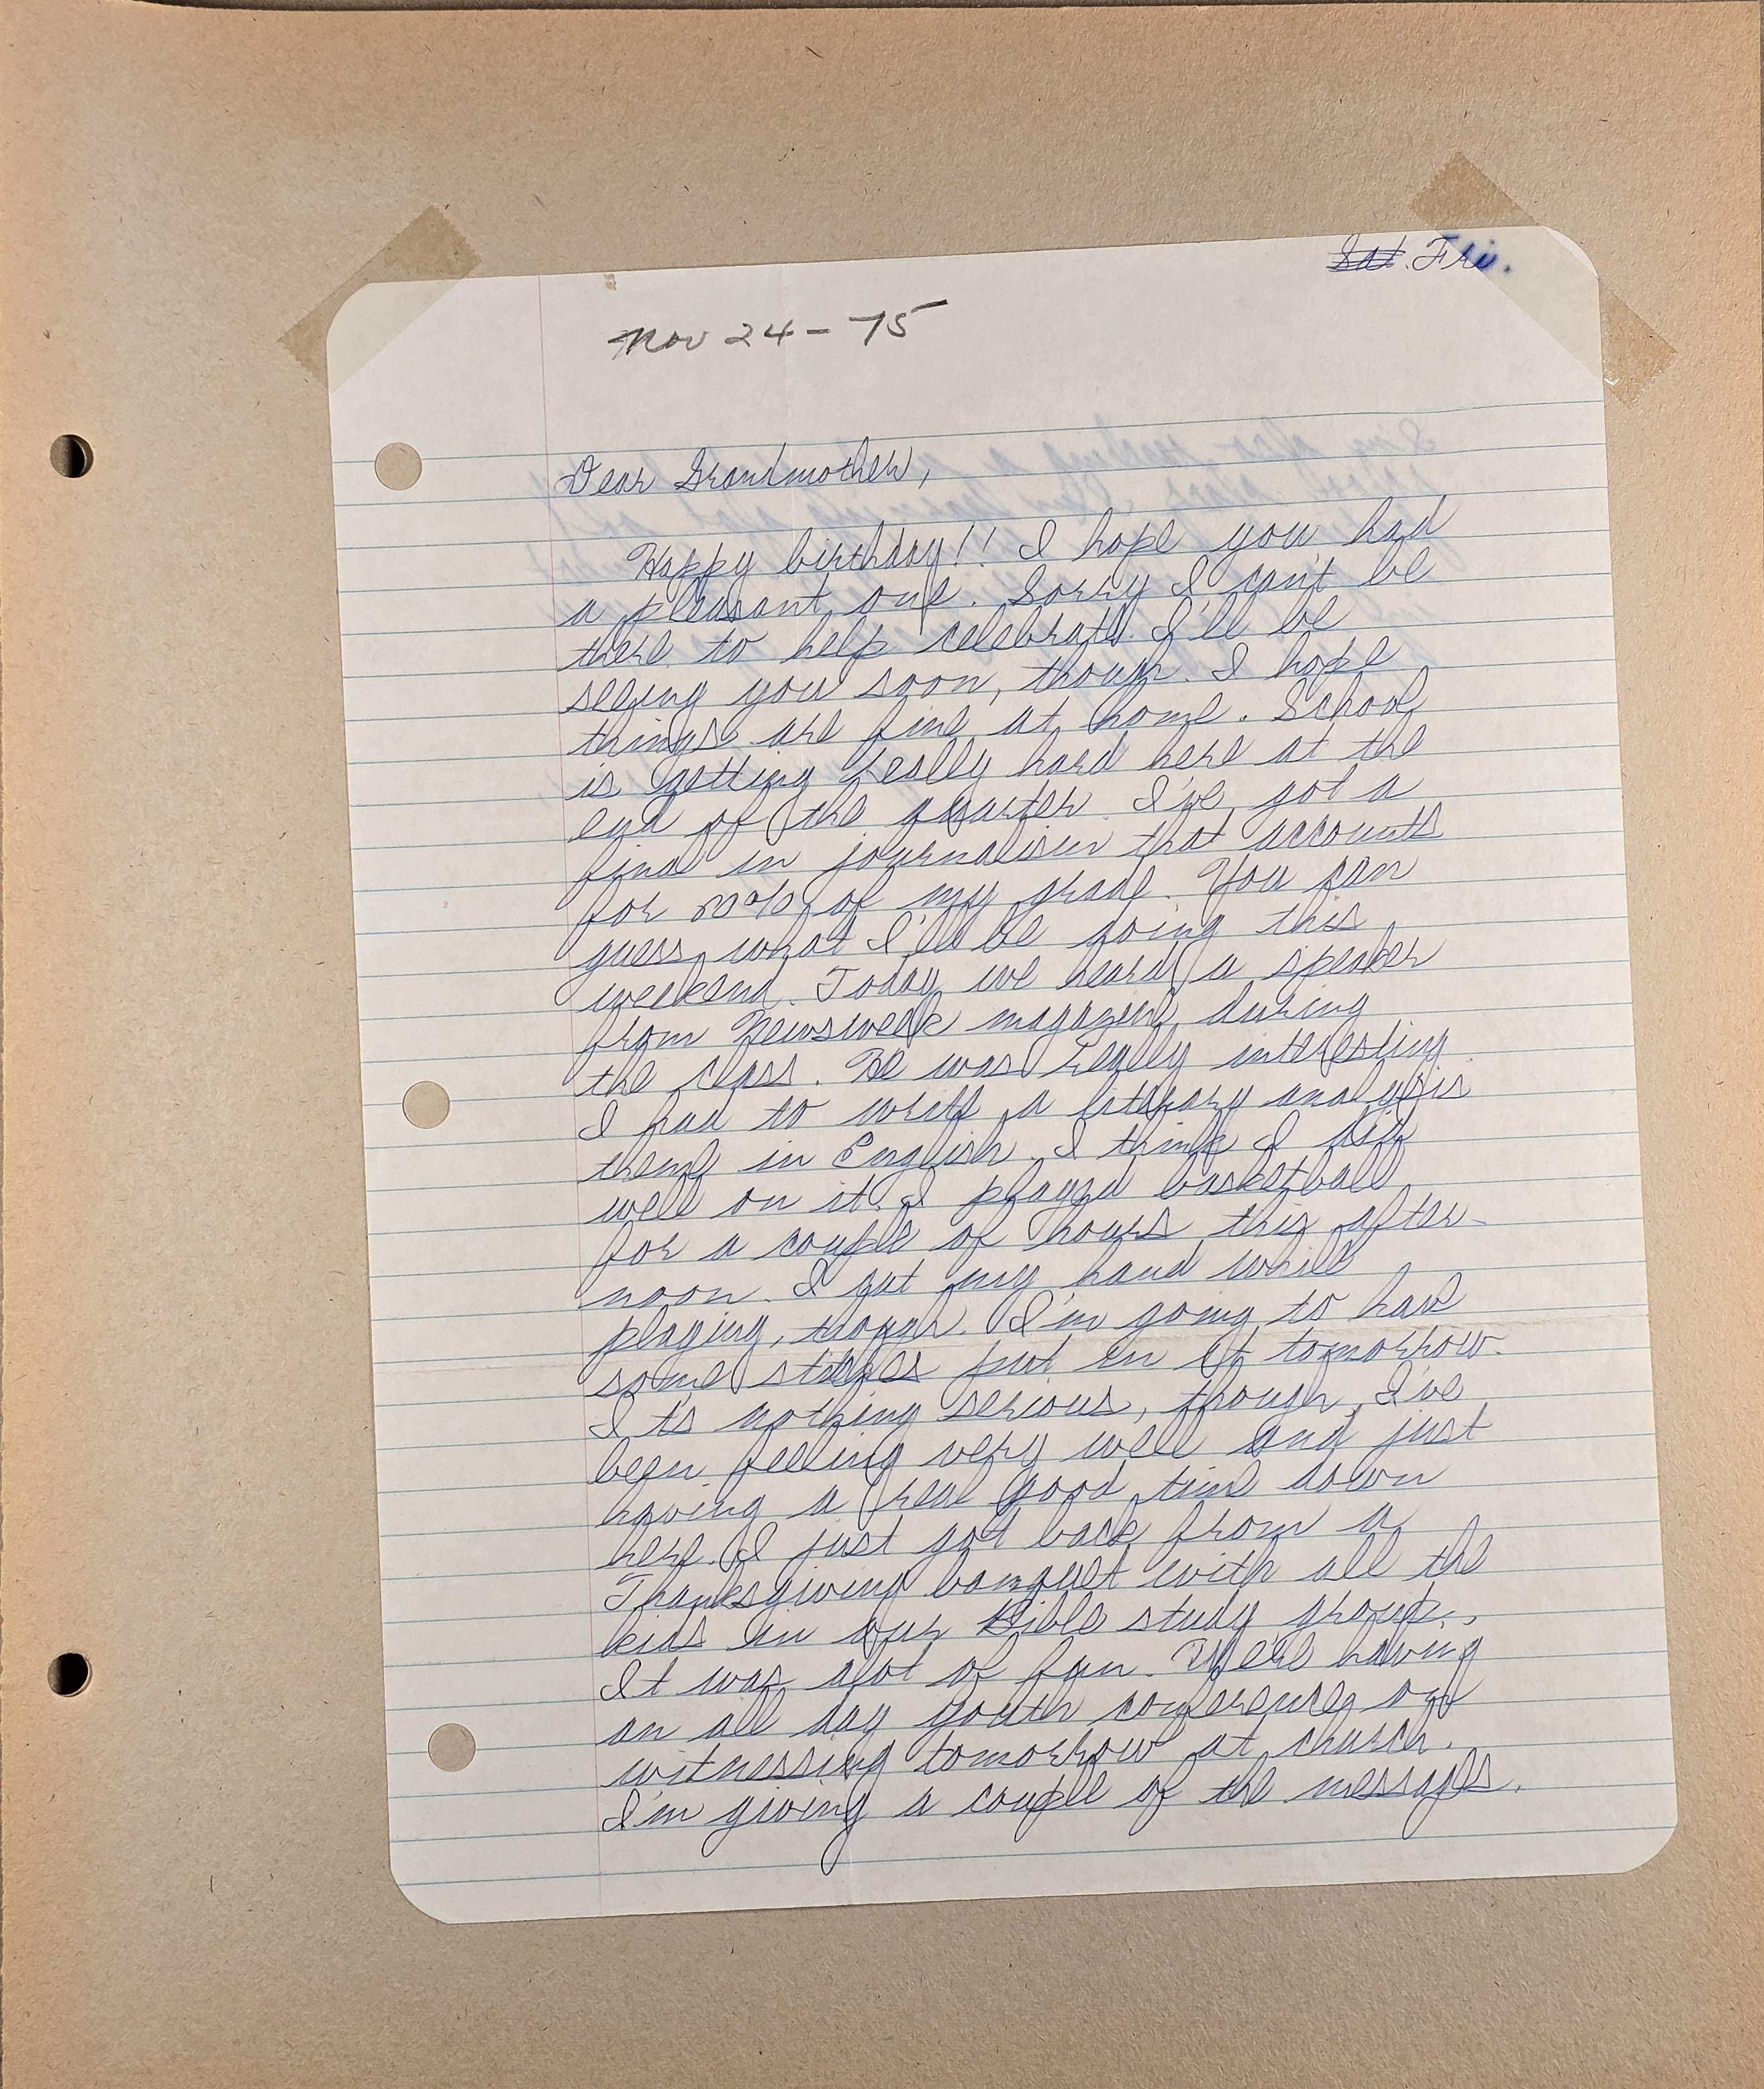 ~~Sat.~~ Fri.
Nov 24 - 75
Dear Grandmother,
Happy birthday!! I hope you had
a pleasant one. Sorry I can't be
there to help celebrate. I'll be
seeing you soon, though. I hope
things are fine at home. School
is getting really hard here at the
end of the quarter. I've got a
final in journalism that accounts
for % of my grade. You can
guess what I'll be doing this
weekend. Today we heard a speaker
from Newsweek magazine during
the class. He was really interesting.
I had to write a literary analysis
theme in English. I think I did
well on it. I played basketball
for a couple of hours this after-
noon. I cut my hand while
playing, though. I'm going to have
some stitches put in it tomorrow.
Its nothing serious, though. I've
been feeling very well and just
having a real good time down
here. I just got back from a
Thanksgiving banquet with all the
kids in our Bible study group.
It was alot of fun. We're having
an all day youth conference on
witnessing tomorrow at church.
I'm giving a couple of the messages.